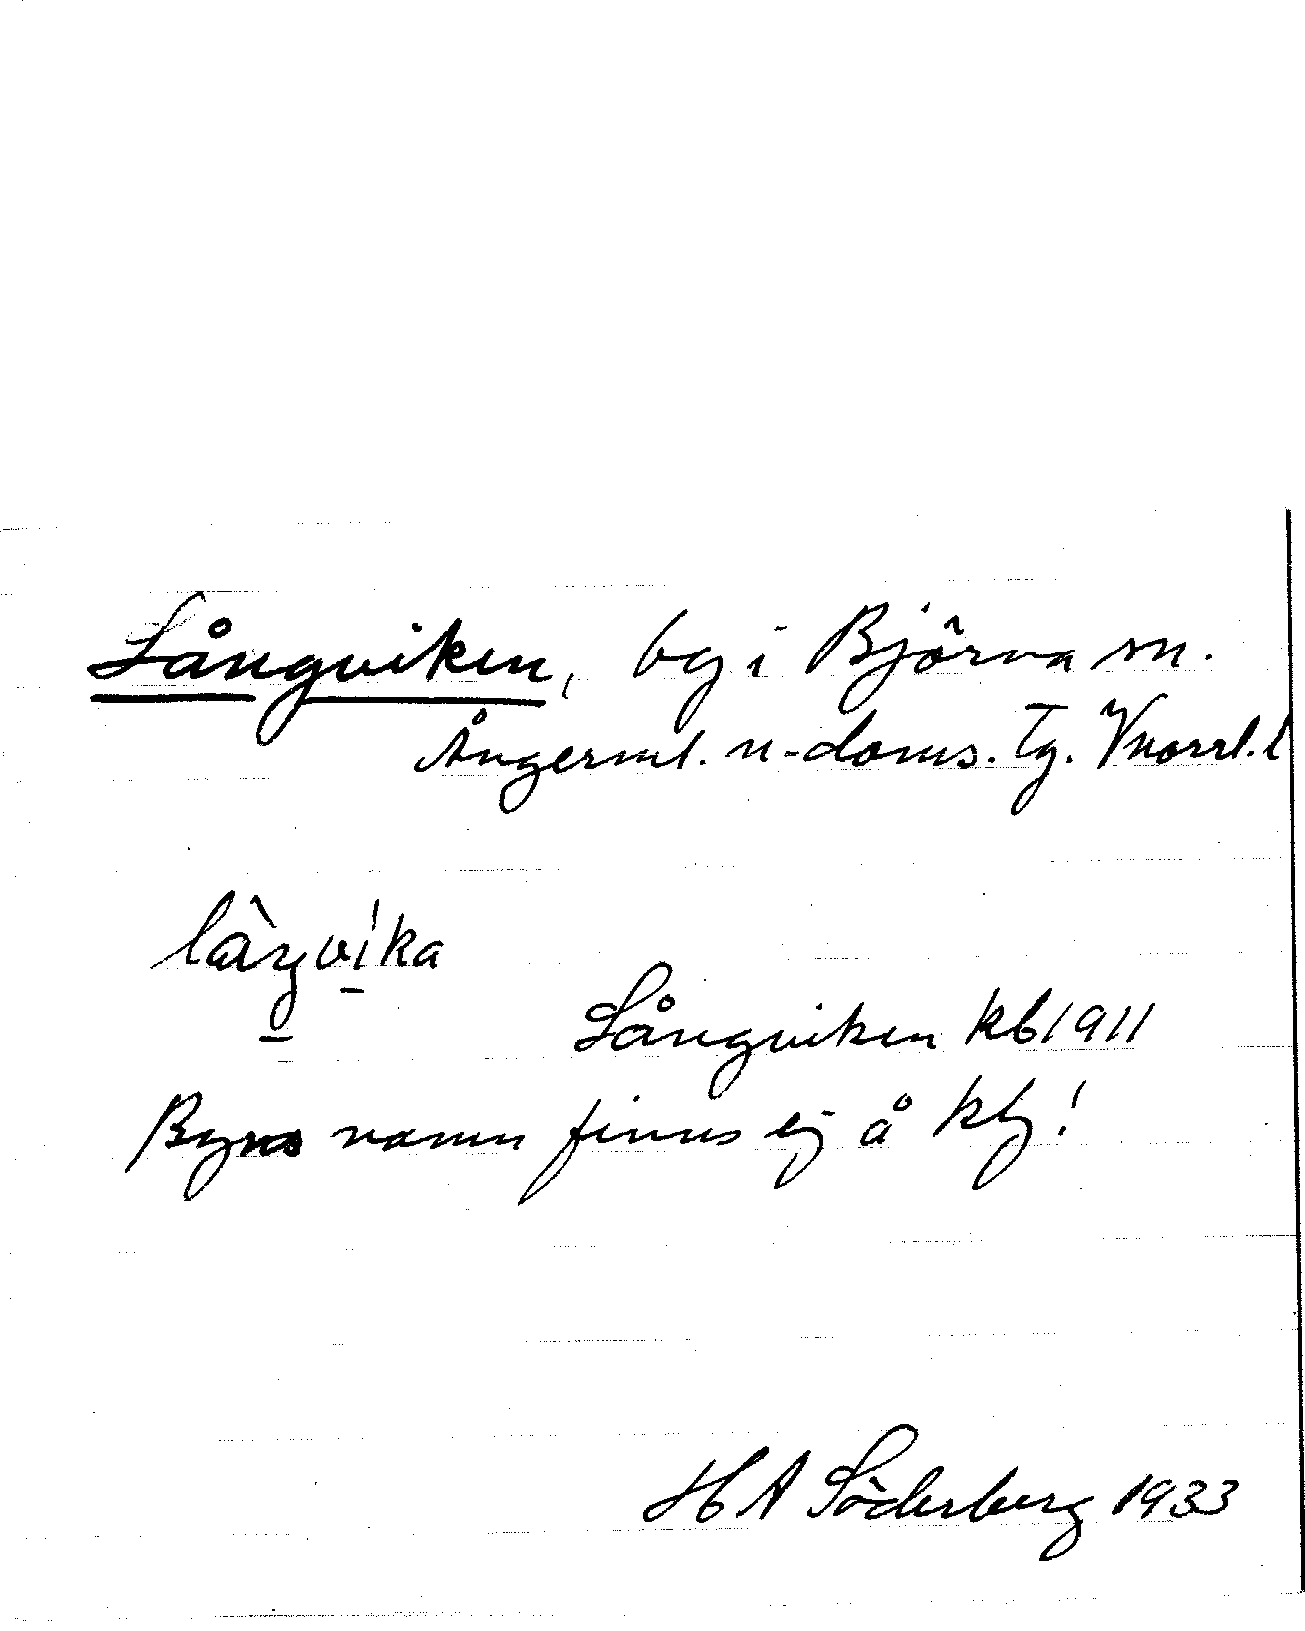 Långviken, by i Björna sn.
Ångerml. n-doms. Tg. Vnorrl. l
làŋvíka
Långviken kb 1911
Byns namn finns ej å kbj!
H A Söderberg 1933